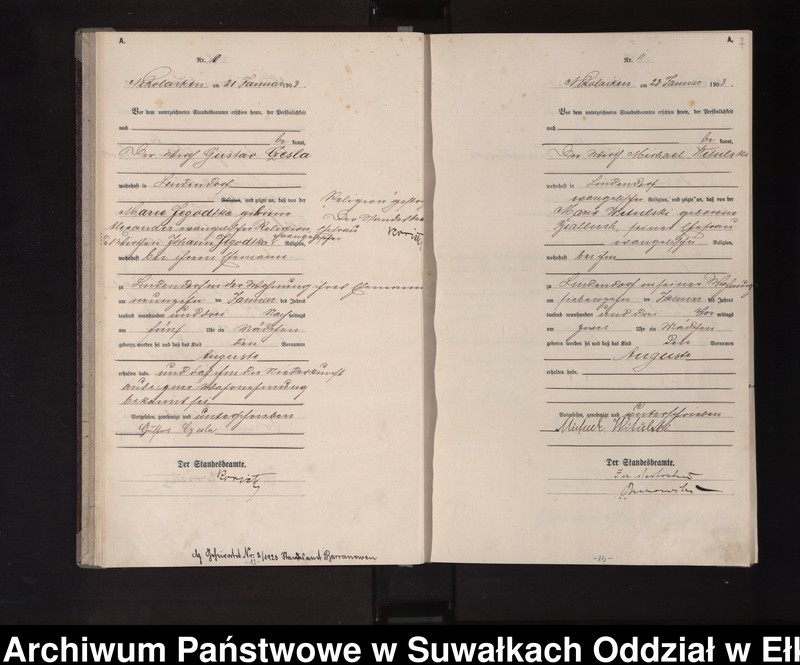 A.
Nr.
Nikolaiken am 21 Januar 1903.
Vor dem unterzeichneten Standesbeamten erschien heute, der Persönlichkeit
nach
be kannt,
Der Wirth Gustav Czesla
wohnhaft in Lindendorf
Religion, und zeigte an, daß von der
Marie Jegodtka geborene
Alexander evangelischer Religion, Ehefrau
Johann Jegodtka evangelischer Religion,
wohnhaft bei ihrem Ehemann
zu Lindendorf in der Wohnung ihres Ehemanns
am neunzehn ten Januar des Jahres
tausend neunhundert und drei Nach mittags
um fünf Uhr ein Mädchen
geboren worden sei und daß das Kind den Vornamen
Auguste
erhalten habe. und daß ihm die Niederkunft
aus eigener Wissenschaft
bekannt sei.
Vorgelesen, genehmigt und unterschrieben
Gustav Czesla
Der Standesbeamte.
Religion
Der Standesbeamte
Nr. 2/1923 Standesamt Barranowen
A.
7
Nr. 11
Nikolaiken am 23 Januar 1903.
Vor dem unterzeichneten Standesbeamten erschien heute, der Persönlichkeit
nach
be kannt,
Der Wirth Michael Witulski
wohnhaft in Lindendorf
evangelischer Religion, und zeigte an, daß von der
Marie Witulski geborene
seiner Ehefrau
evangelischer Religion,
wohnhaft bei ihm
zu Lindendorf in seiner Wohnung
am siebenzehn ten Januar des Jahres
tausend neunhundert und drei Vor mittags
um zwei Uhr ein Mädchen
geboren worden sei und daß das Kind den Vornamen
Auguste
erhalten habe.
Vorgelesen, genehmigt und unterschrieben
Michael Witulski
Der Standesbeamte.
- 13 -
Archiwum Państwowe w Suwałkach Oddział w Ełk